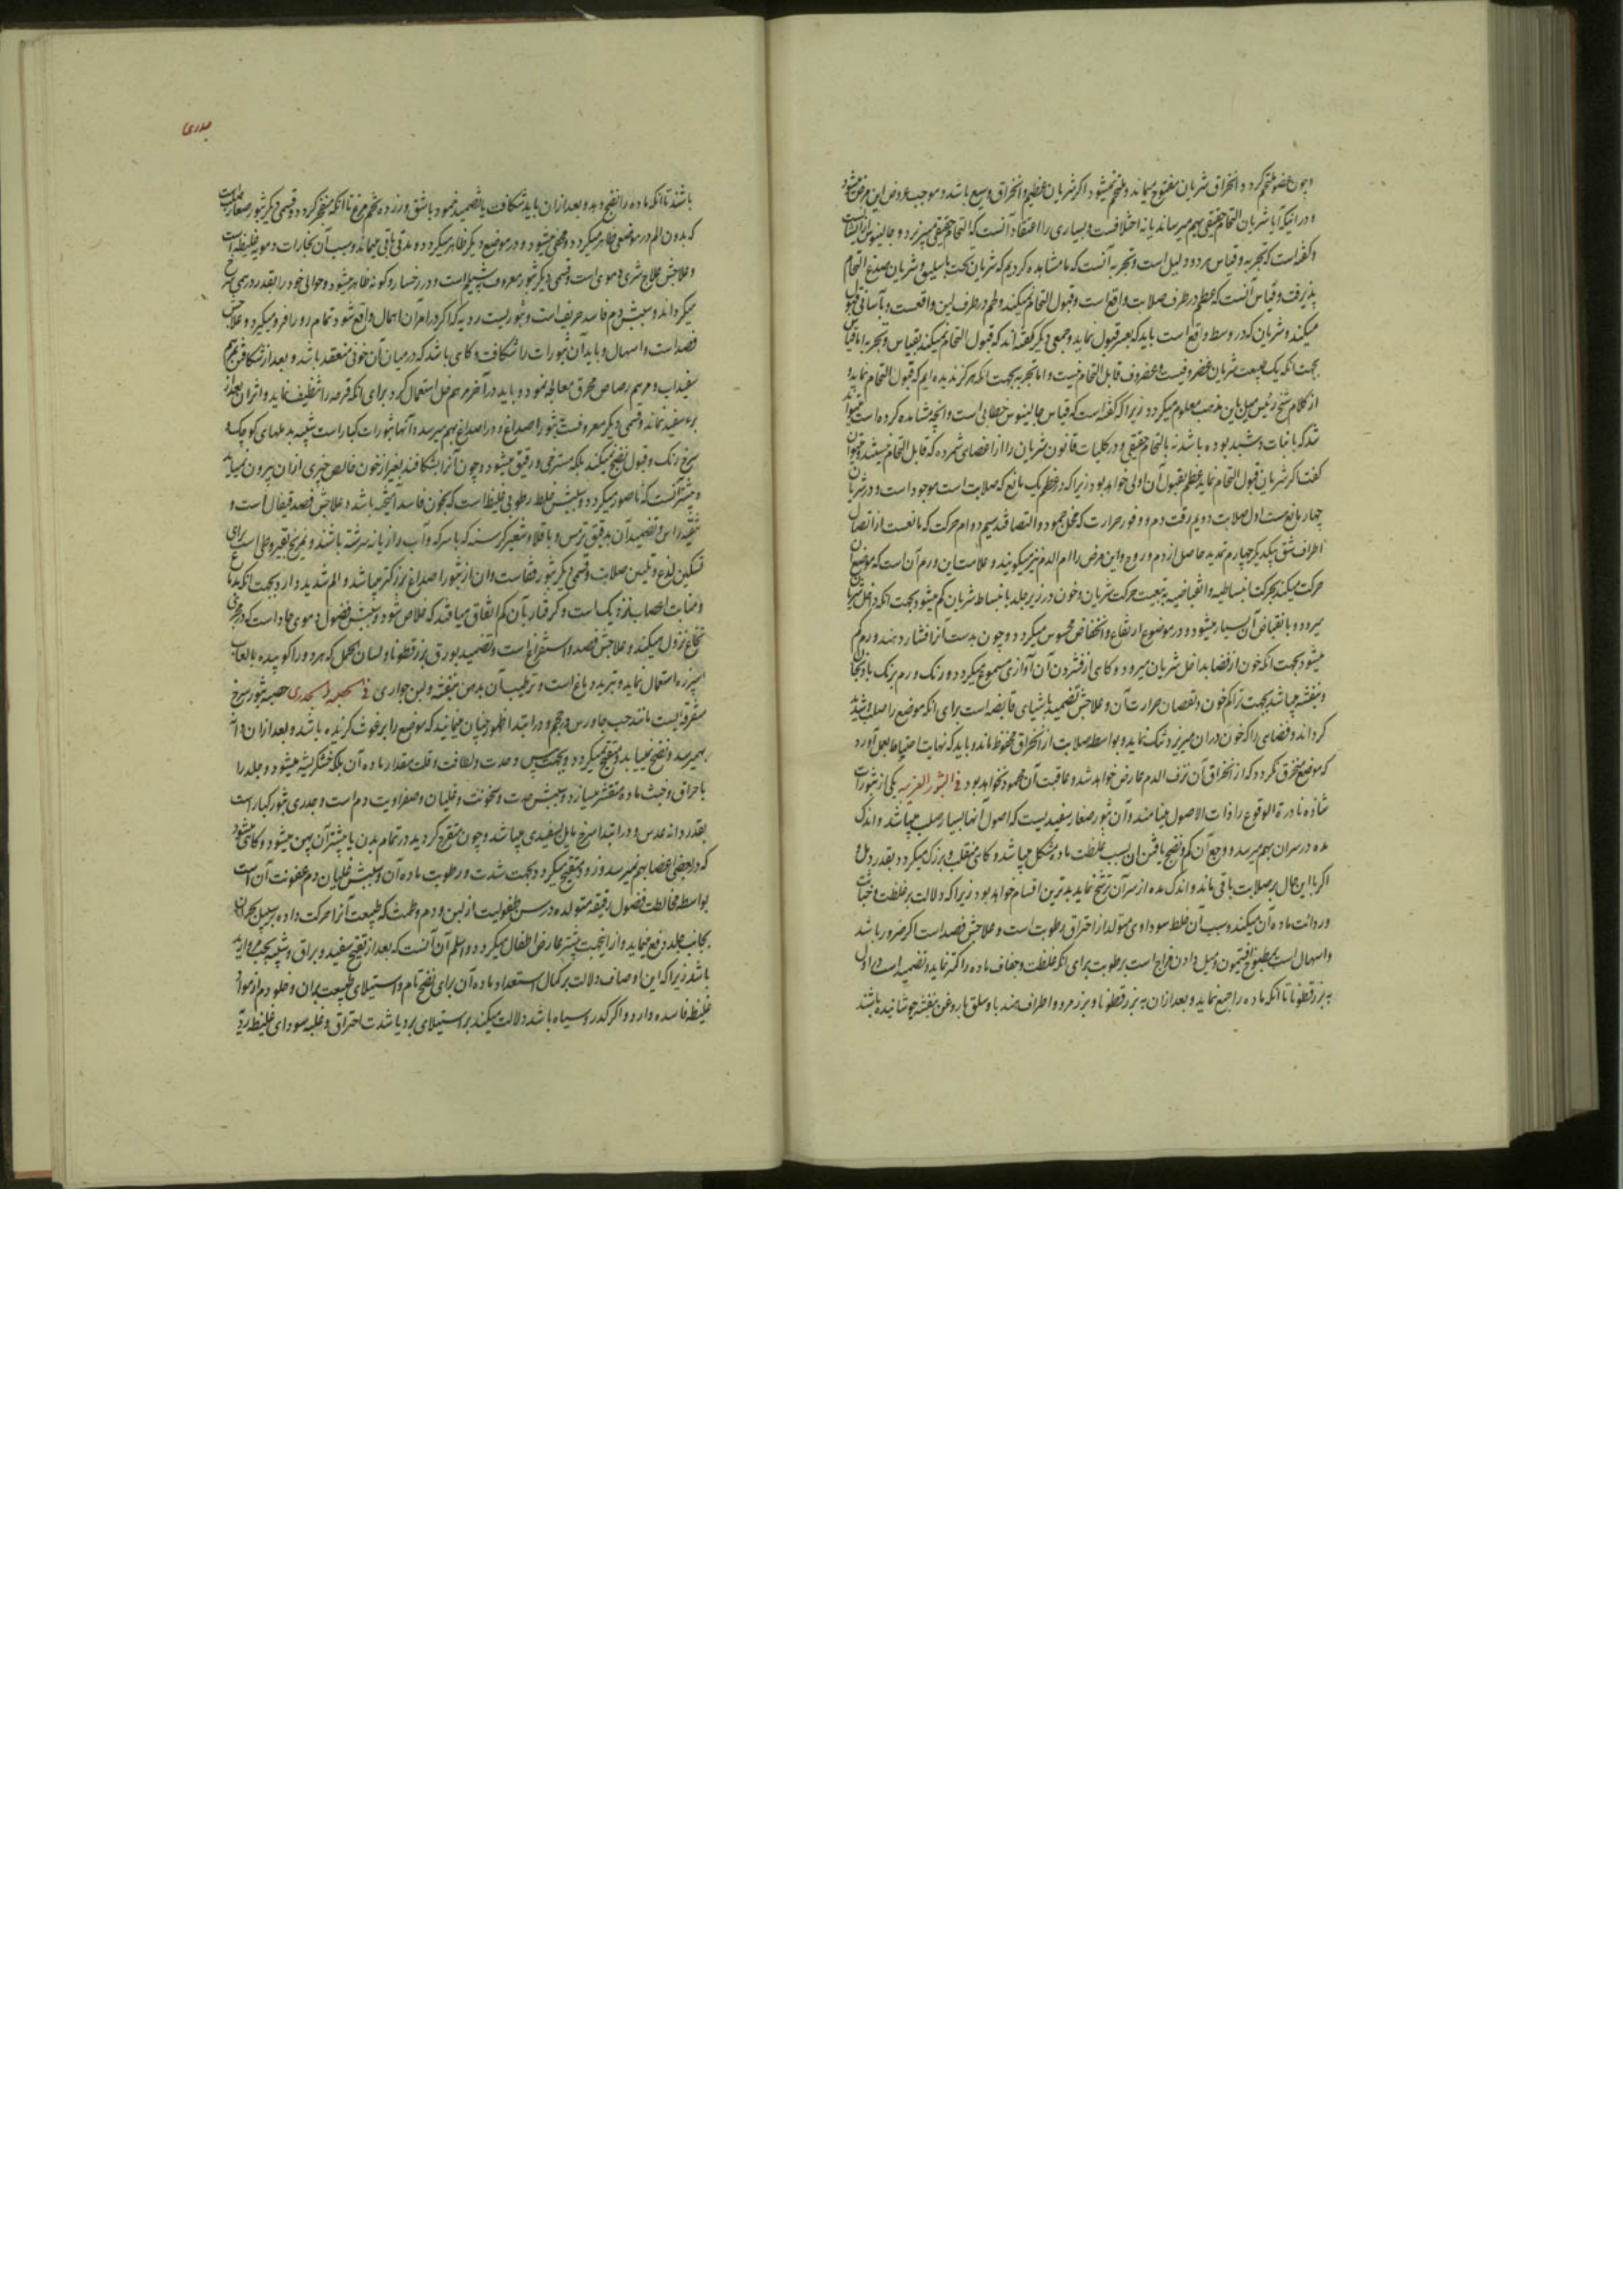 و چون عضو ملتحم گردد و انخراق شریان مفتوح میماند و ملتحم نمیشود اگر شریان عظیم و انخراق وسیع باشد و موجب عروض این مرض میشود
و در اینکه آیا شریان التحام حقیقی بهم میرساند یا نه اختلافست و بسیاری را اعتقاد آنست که التحام حقیقی نمی‌پذیرد و جالینوس از ایشانست
و گفته است که تجربه و قیاس هر دو دلیل است و تجربه آنست که ما مشاهده کردیم که شریان تحت باسلیق و شریان صدغ التحام
پذیرفت و قیاس آنست که عظم در طرف صلابت واقع است و قبول التحام نمیکند و لحم در طرف لین واقعست و بآسانی قبول
میکند و شریان که در وسط واقع است باید که بعسر قبول نماید و جمعی دیگر گفته‌اند که قبول التحام نمیکند بقیاس و تجربه اما قیاس
بجهت آنکه یک طبیعت شریان غضروفیست و غضروف قابل التحام نیست و اما تجربه بجهت آنکه هرگز ندیده‌ایم که قبول التحام نماید و
از کلام شیخ رئیس میل باین مذهب معلوم میگردد زیرا که گفته است که قیاس جالینوس خطابی است و آنچه مشاهده کرده است میتواند
شد که بانبات دشبد بوده باشد نه بالتحام حقیقی و در کلیات قانون شریان را از اعضای شمرده که قابل التحام نیستند و میتوان
گفت اگر شریان قبول التحام نماید عظم بقبول آن اولی خواهد بود زیرا که در عظم یک مانع که صلابت است موجود است و در شریان
چهار مانع هست اول صلابت دویم رقت دم و وفور حرارت که مخل جمود و التصاقند سیم دوام حرکت که مانعست از اتصال
اطراف شق بیکدیگر چهارم تمدید حاصل از دم و روح و این مرض را ام الدم نیز میگویند و علامت این ورم آن است که موضع آن
حرکت میکند بحرکت انبساطیه و انقباضیه به تبعیت حرکت شریان و خون در زیر جلد بانبساط شریان کم میشود بجهت آنکه داخل شریان
میرود و بانقباض آن بسیار میشود و در موضع ارتفاع و انخفاض محسوس میگردد و چون بدست آنرا فشار دهند ورم کم
میشود بجهت آنکه خون از فضا بداخل شریان میرود و گاهی از فشردن آن آوازی مسموع میگردد و رنگ ورم برنگ بادنجان
و بنفشه میباشد بجهت تراکم خون و نقصان حرارت آن و علاجش تضمید باشیای قابضه است برای آنکه موضع را صلب و شدید
گرداند و فضای را که خون در آن میریزد تنگ نماید و بواسطه صلابت از انخراق محفوظ ماند و باید که نهایت احتیاط بعمل آورد
که موضع منخرق نگردد که از انخراق آن نزف الدم عارض خواهد شد و عاقبت آن محمود نخواهد بود فی البثور الغریبه یکی از بثورات
شاذه نادرة الوقوع را ذات الاصول مینامند و آن بثور صغار سفیدیست که اصول آنها بسیار صلب میباشد و اندک
مده در سر آن بهم میرسد و وجع آن کم و نضج یافتن آن بسبب غلظت ماده مشکل میباشد و گاهی منقلب و بزرگ میگردد بقدر دمل و
اگر با این حال بر صلابت باقی ماند و اندک مده از سر آن ترشح نماید بدترین اقسام خواهد بود زیرا که دلالت بر غلظت و خباثت
و ردائت ماده آن میکند و سبب آن خلط سوداوی متولد از احتراق رطوبت است و علاجش فصد است اگر ضرور باشد
و اسهال است بمطبوخ افتیمون و میل دادن مزاج است برطوبت برای آنکه غلظت و جفاف ماده را کمتر نماید و تضمید است در اول
به بزرقطونا تا آنکه ماده را جمع نماید و بعد از آن به بزرقطونا و بزر مرو و اطراف هندبا و سلق با روغن بنفشه جوشانیده باشند
جدری
باشند تا آنکه ماده را نضج دهد و بعد از آن باید شکافت یا تضمید نمود باشق و زرده تخم مرغ تا آنکه منفجر گردد و قسمی دیگر بثور صغار است
که بدون الم در موضعی ظاهر میگردد و مخفی میشود و در موضع دیگر ظاهر میگردد و مدتی باقی میماند و سبب آن بخارات دمویه غلیظه است
و علاجش علاج شری دموی است و قسمی دیگر بثور معروف است و در رخسار و گونه ظاهر میشود و حوالی خود را بقدر درهمی سرخ
میگرداند و سببش دم فاسد حریف است و بثوریست ردیه که اگر در امر آن اهمال واقع شود تمام رو را فرو میگیرد و علاجش
فصد است و اسهال و باید آن بثورات را شکافت و گاهی باشد که در میان آن خونی منعقد باشد و بعد از شکافتن بمرهم
سفیداب و مرهم رصاص محرق معالجه نمود و باید در آخر مرهم خل استعمال کرد برای آنکه قرحه را تنظیف نماید و اثر آن بعد از
برء سفید نماند و قسمی دیگر معروفست ببثور اصداغ و در اصداغ بهم میرسد و آنها بثورات کبار است شبیه بدملهای کوچک و
سرخ رنگ و قبول نضج نمیکند بلکه مسترخی و رقیق میشود و چون آنرا بشکافند بغیر از خون خالص چیزی از آن بیرون نمیآید
و بیشتر آنست که ناصور میگردد و سببش خلط رطوبی غلیظ است که بخون فاسد آمیخته باشد و علاجش فصد قیفال است و
تنقیه راس و تضمید آن بدقیق ترمس و باقلا و شعیر و کرسنه که با سرکه و آب رازیانه سرشته باشند و تمریخ بقیروطی است برای
تسکین لذع و تلیین صلابت و قسمی دیگر بثور قفاست و آن از بثور اصداغ بزرگتر میباشد و الم شدید دارد بجهت آنکه بدماغ
و منابت اعصاب نزدیک است و گرفتار بآن کم اتفاق میافتد که خلاص شود و سببش فضول دموی حاد است که در مجرای
نخاع نزول میکند و علاجش فصد و استفراغ است و تضمید بورق بزرقطونا و لسان الحمل که هر دو را کوبیده با لعاب
اسپرزه استعمال نماید و تبرید دماغ است و ترطیب آن بدهن بنفشه و لبن جواری فی الحصبه و الجدری حصبه بثور سرخ
متفرقه‌ایست مانند حب جاورس در حجم و در ابتدا ظهور چنان مینماید که موضع را برغوث گزیده باشد و بعد از آن دانه
بهم میرسد و نضج نمییابد و متقیح نمیگردد بجهت یبس و حدت و لطافت و قلت مقدار ماده آن بلکه خشکریشه میشود و جلد را
باحراق و خبث ماده متقشر میسازد و سببش حدت و سخونت و غلیان و صفراویت دم است و جدری بثور کبار است
بقدر دانه عدس و در ابتدا سرخ مایل بسفیدی میباشد و چون متقرح گردید در تمام بدن یا بیشتر آن پهن میشود و گاهی میشود
که در بعضی اعضا بهم نمیرسد و زود متقیح میگردد بجهت شدت و رطوبت ماده آن و سببش غلیان دم و عفونت آن است
بواسطه مخالطت فضول رقیقه متولده در سن طفولیت از لبن و دم طمث که طبیعت آنرا حرکت داده بر سبیل بحران
بجانب جلد دفع مینماید و از اینجهت بیشتر عارض اطفال میگردد و اسلم آن آنست که بعد از تقیح سفید و براق و شبیه بحب مروارید
باشد زیرا که این اوصاف دلالت بر کمال استعداد ماده آن برای نضج تام و استیلای طبیعت بر آن و خلو دم از مواد
غلیظه فاسده دارد و اگر کدر و سیاه باشد دلالت میکند بر استیلای برد یا شدت احتراق و غلبه سودای غلیظ ردی